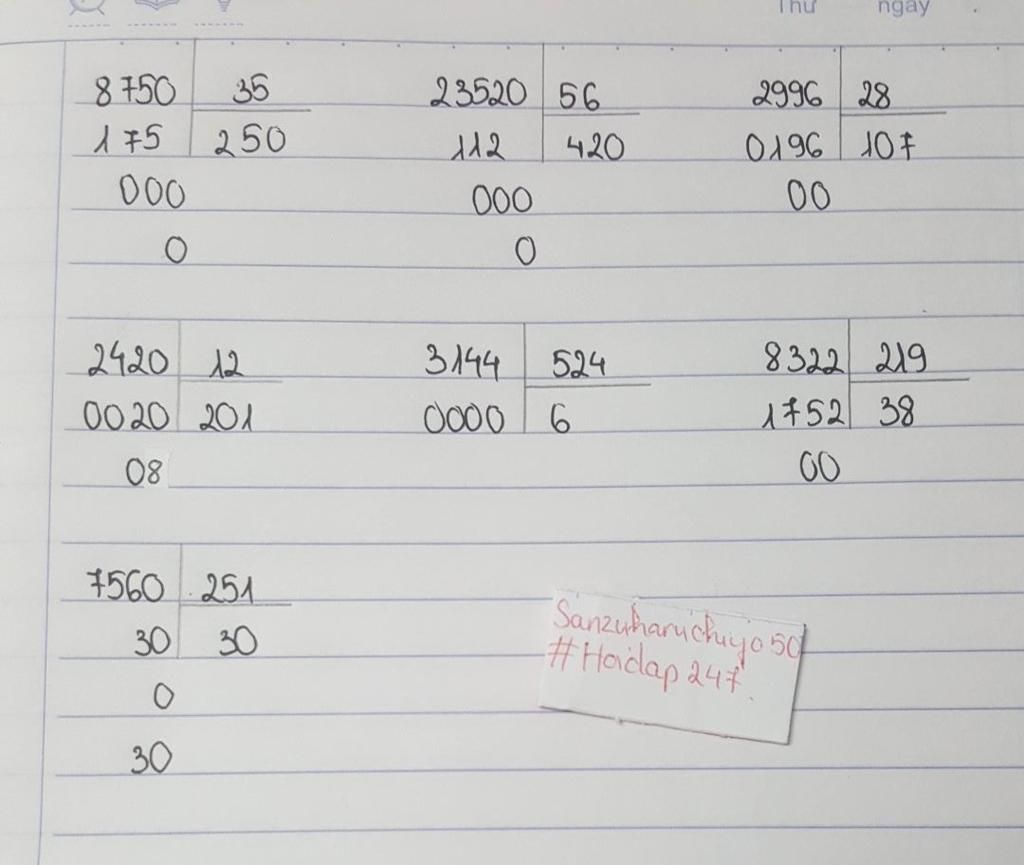 Thứ ngày
8750 35
175 250
000
0
23520 56
112 420
000
0
2996 28
0196 107
00
2420 12
0020 201
08
3144 524
0000 6
8322 219
1752 38
00
7560 251
30 30
0
30
Sanzuharuchiyo50
#Hoidap247